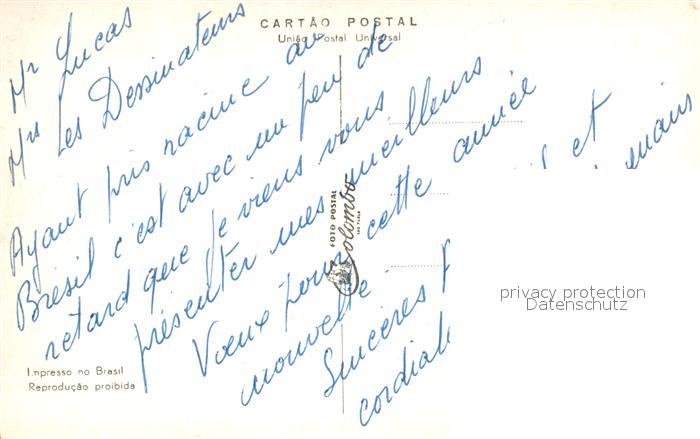 CARTÃO POSTAL
União Postal Universal
Mr Lucas
Mrs Les Dessinateurs
Ayant pris racine au
Brésil c'est avec un peu de
retard que je viens vous
présenter mes meilleurs
Vœux pour cette année
nouvelle.
et
Sincères
mains
cordial
FOTO POSTAL
Colombo
privacy protection
Datenschutz
Impresso no Brasil
Reprodução proibida